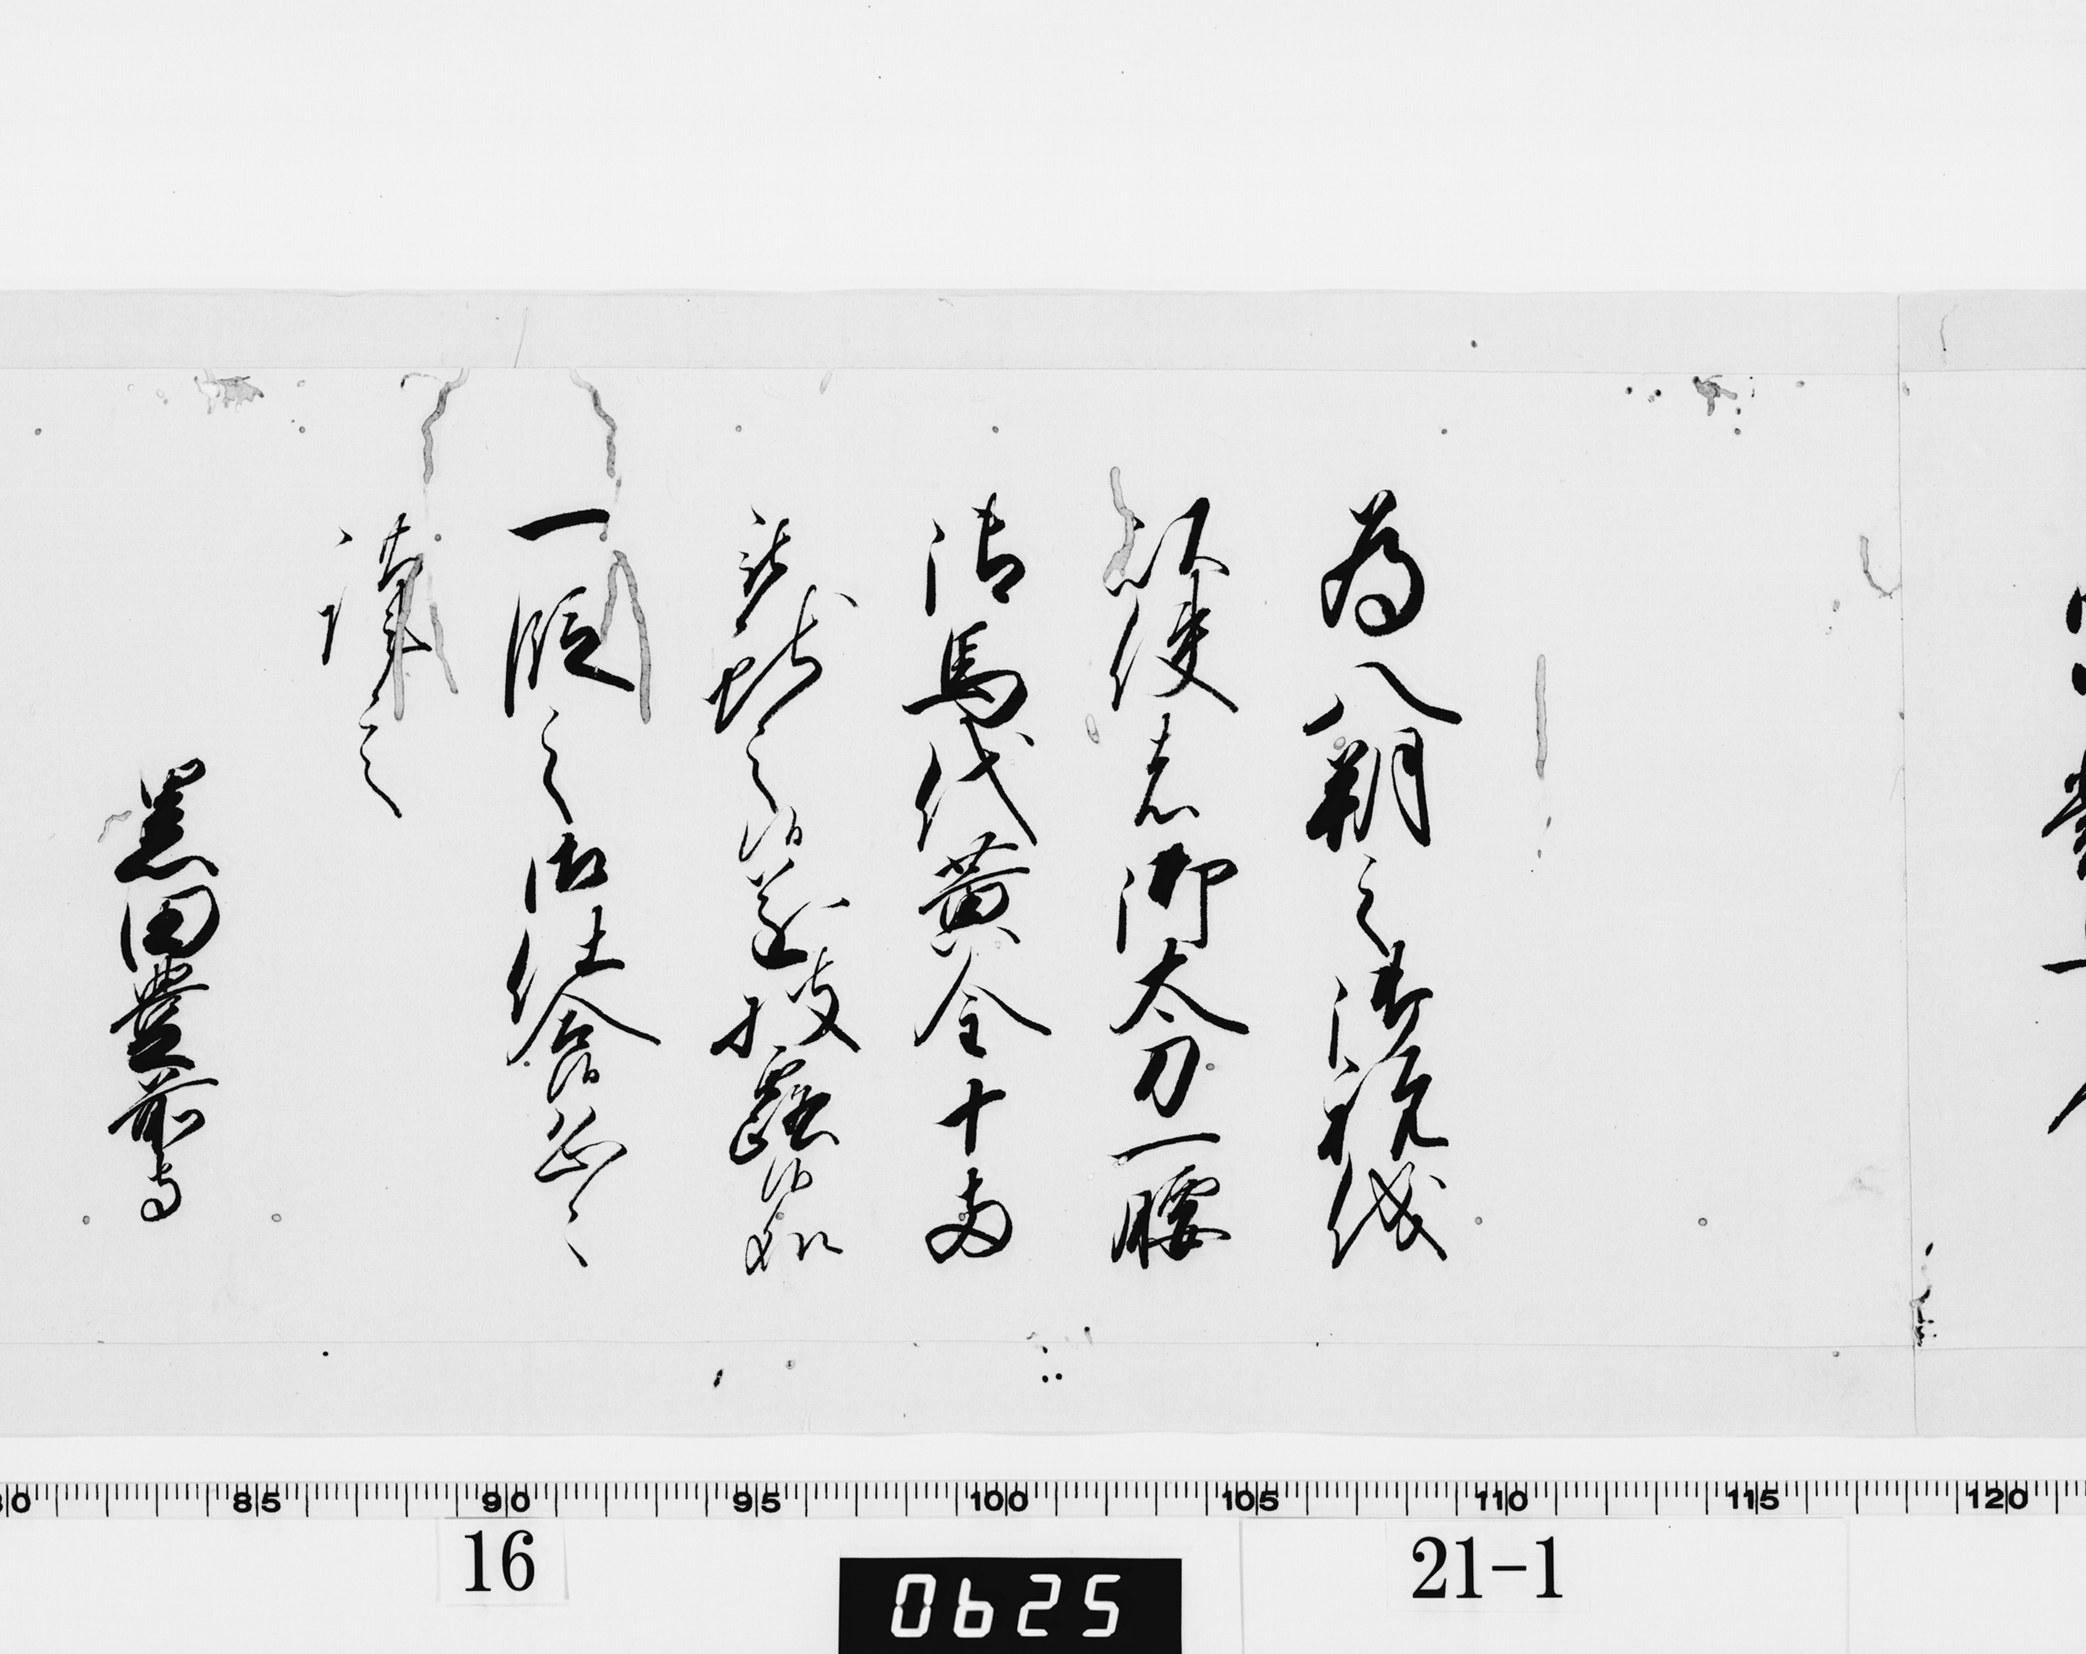 為八朔之御祝儀
以使者御太刀一腰
御馬代黄金十両
被献之候遂披露候処
一段之御仕合候恐々
謹言
黒田豊前守
85 90 95 100 105 110 115 120
16
0625
21-1